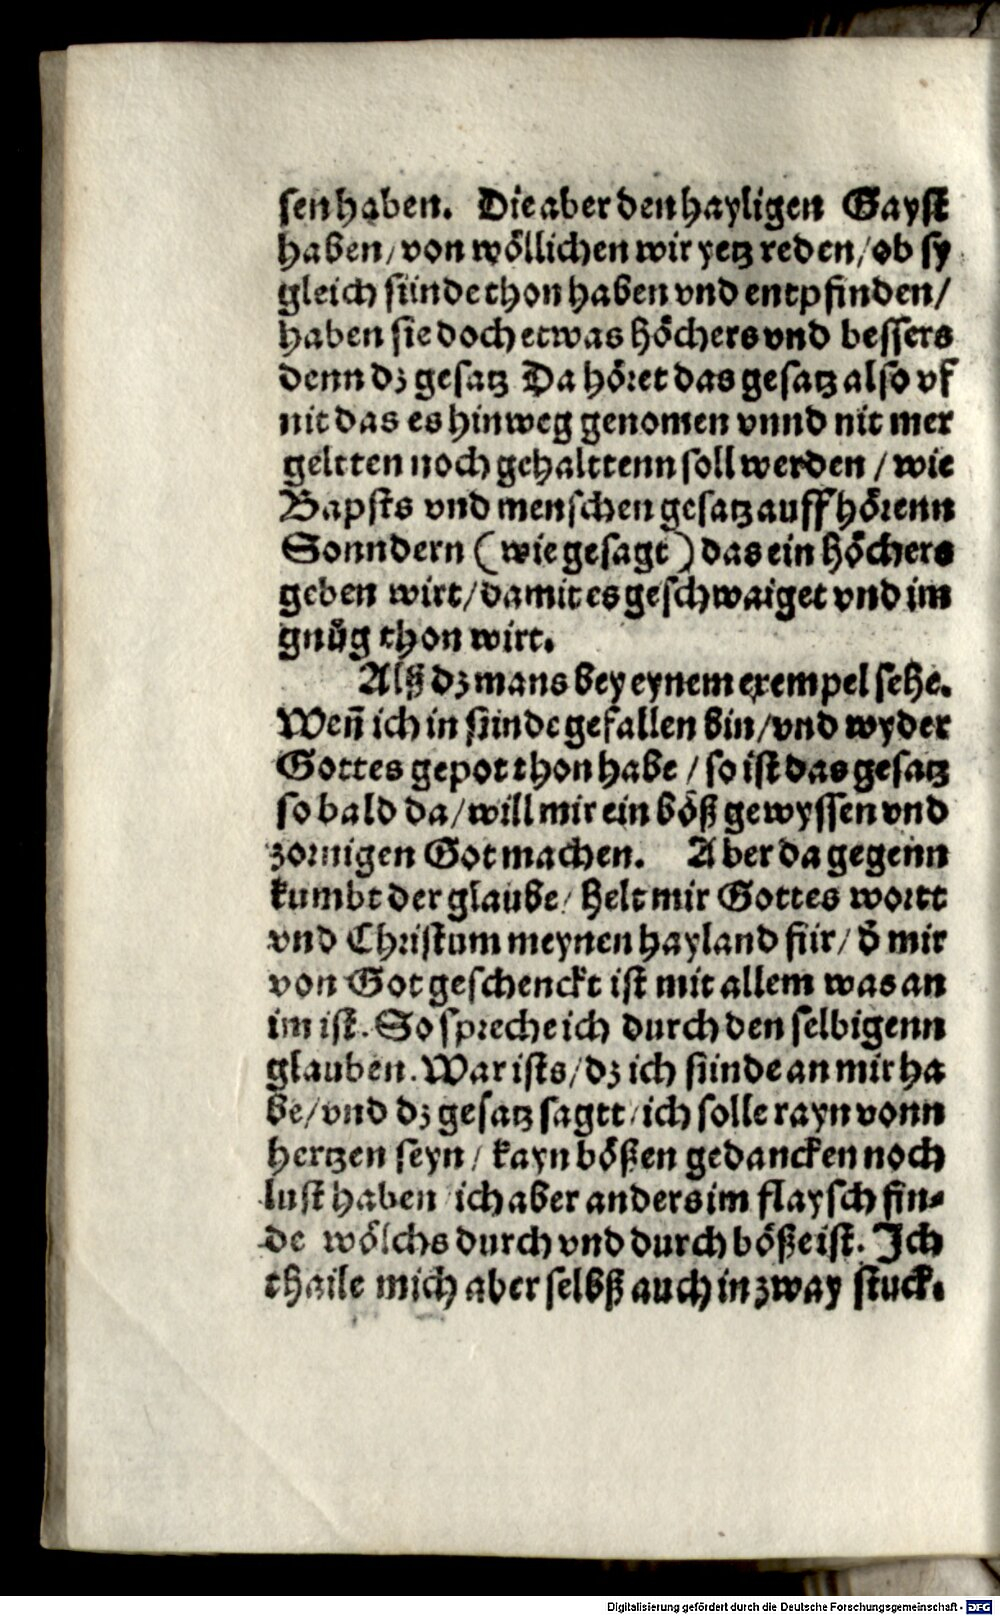 sen haben. Die aber den hayligen Gayst
haben/ von wöllichen wir yetz reden/ ob sy
gleich sünde thon haben vnd entpfinden/
haben sie doch etwas höchers vnd bessers
denn dz gesatz Da höret das gesatz also vf
nit das es hinweg genomen vnnd nit mer
geltten noch gehalttenn soll werden / wie
Bapsts vnd menschen gesatz auff hörenn
Sonndern (wie gesagt) das ein höchers
geben wirt/ damit es geschwaiget vnd im
gnůg thon wirt.
Alß dz mans bey eynem exempel sehe.
Weñ ich in sünde gefallen bin/ vnd wyder
Gottes gepot thon habe / so ist das gesatz
so bald da/ will mir ein böß gewyssen vnd
zornigen Got machen. Aber da gegenn
kumbt der glaube/ helt mir Gottes wortt
vnd Christum meynen hayland für/ d̕ mir
von Got geschenckt ist mit allem was an
im ist. So spreche ich durch den selbigenn
glauben. War ists/ dz ich sünde an mir ha
be/ vnd dz gesatz sagtt/ ich solle rayn vonn
hertzen seyn/ kayn bößen gedancken noch
lust haben/ ich aber anders im flaysch fin⸗
de wölchs durch vnd durch böße ist. Ich
thaile mich aber selbß auch in zway stuck.
Digitalisierung gefördert durch die Deutsche Forschungsgemeinschaft - DFG